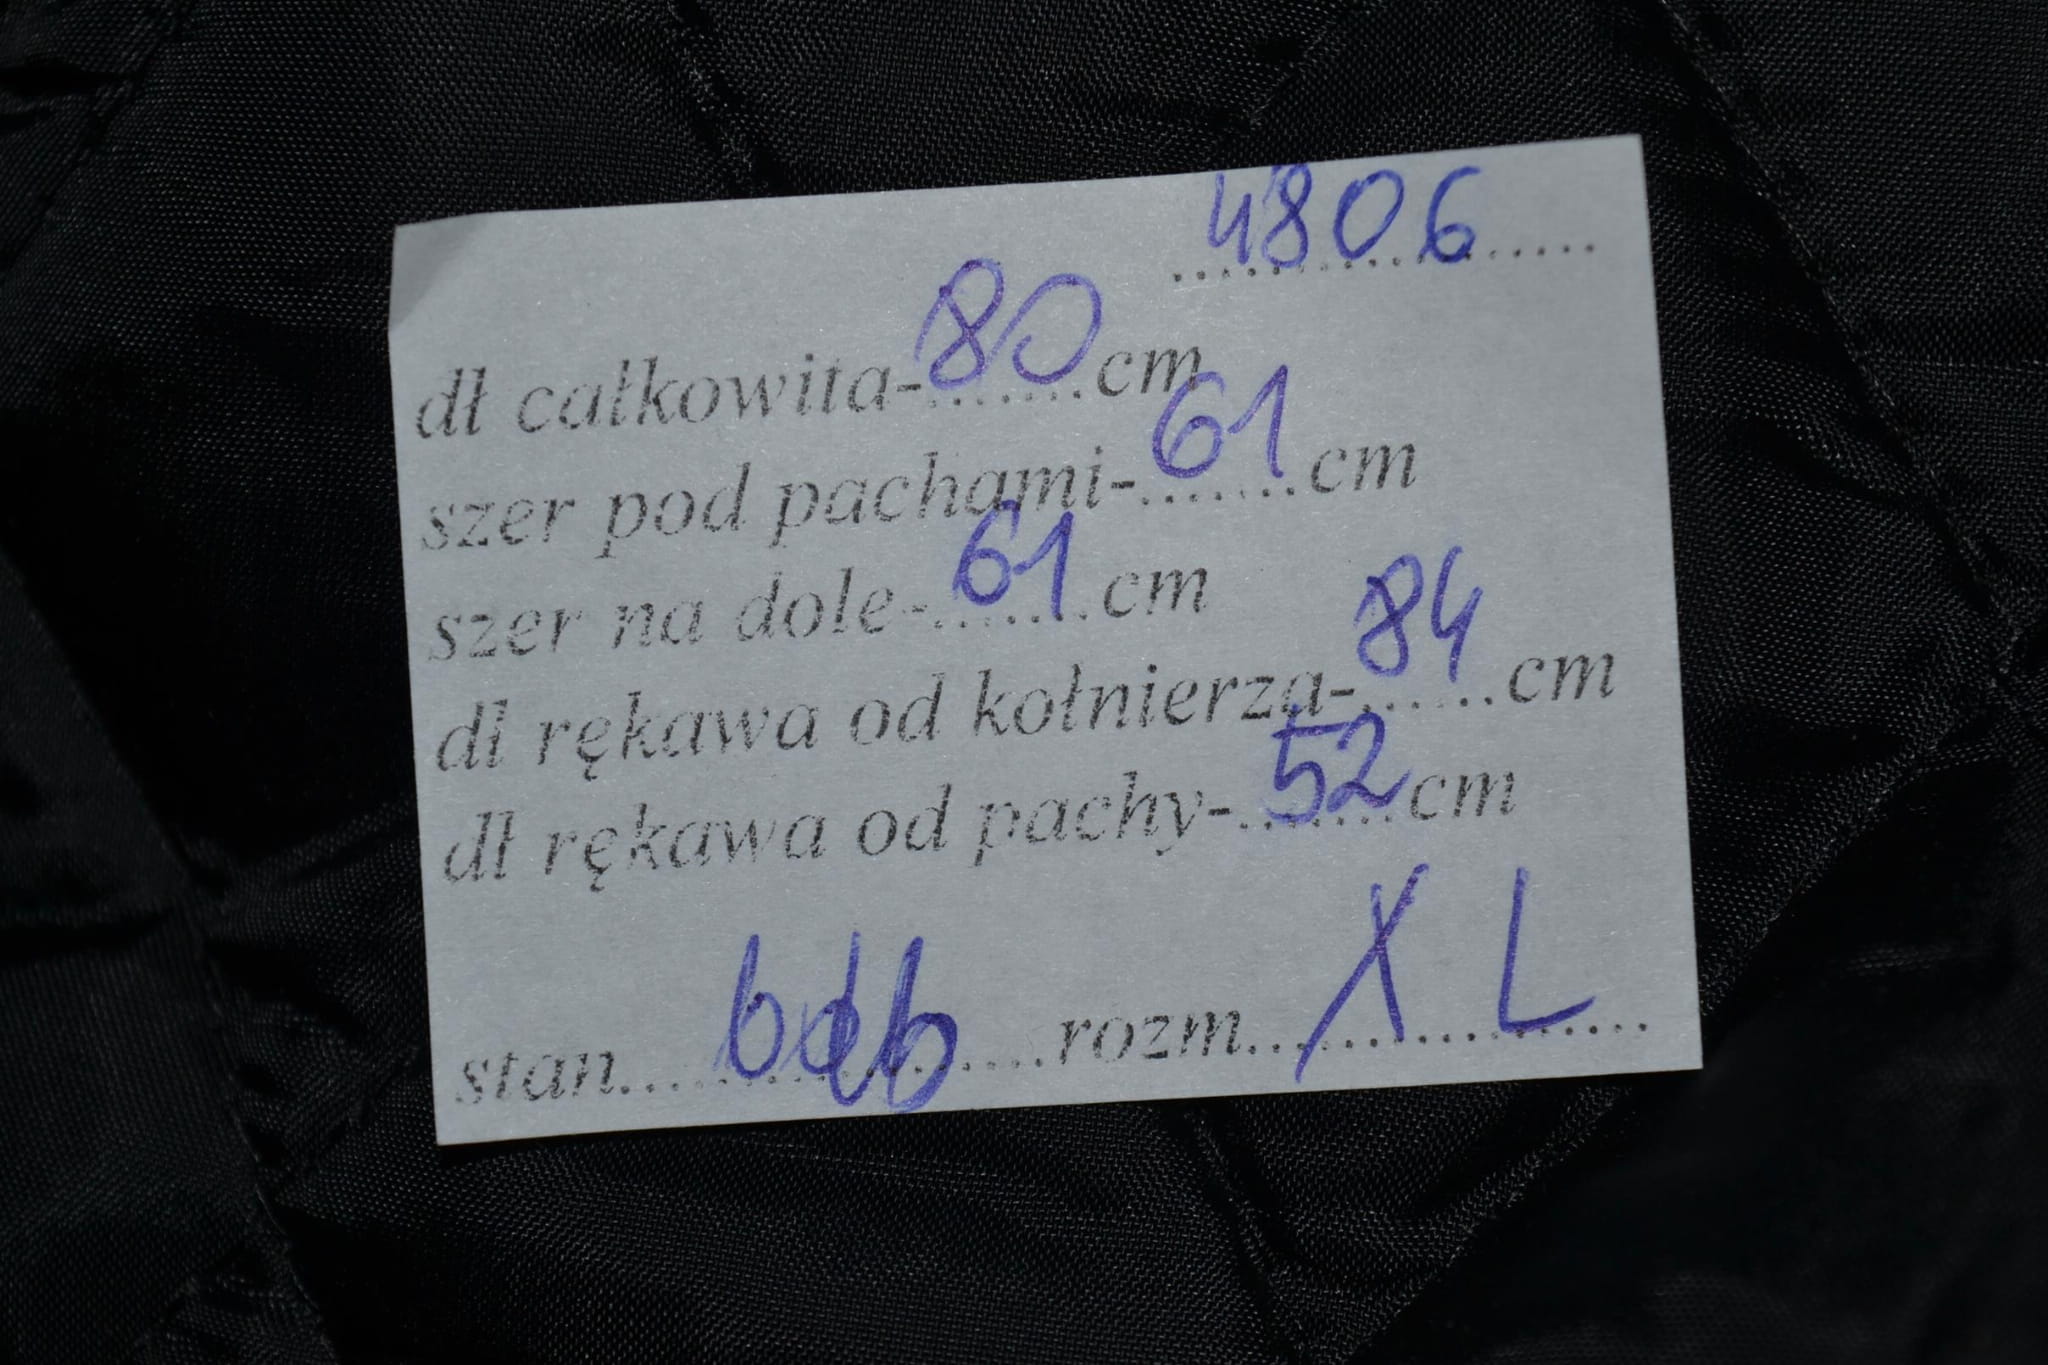 4806
dł całkowita-80cm
szer pod pachami-61cm
szer na dole-61cm
dł rękawa od kołnierza-84cm
dł rękawa od pachy-52cm
stan bdb rozm XL